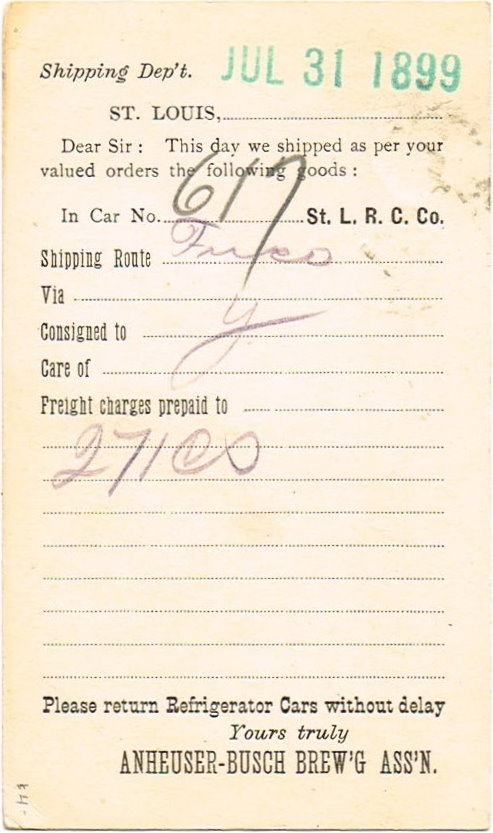 Shipping Dep't. JUL 31 1899
ST. LOUIS,
Dear Sir: This day we shipped as per your
valued orders the following goods:
In Car No. 617 St. L. R. C. Co.
Shipping Route Frisco
Via
Consigned to y
Care of
Freight charges prepaid to
271 CS
Please return Refrigerator Cars without delay
Yours truly
ANHEUSER-BUSCH BREW'G ASS'N.